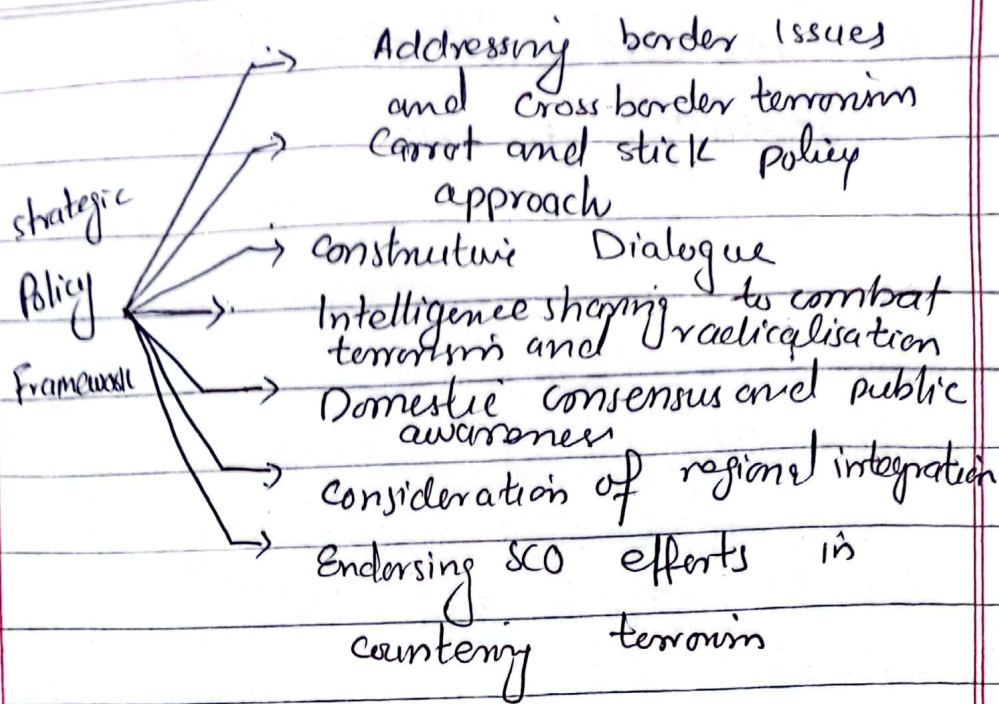 Addressing border Issues
and cross border terrorism
Carrot and stick policy
approach
strategic
Policy
Framework
construtive Dialogue
Intelligence sharing to combat
terrorism and radicalisation
Domestic consensus and public
awareness
consideration of regional integration
Endorsing SCO efforts in
countering terrorism